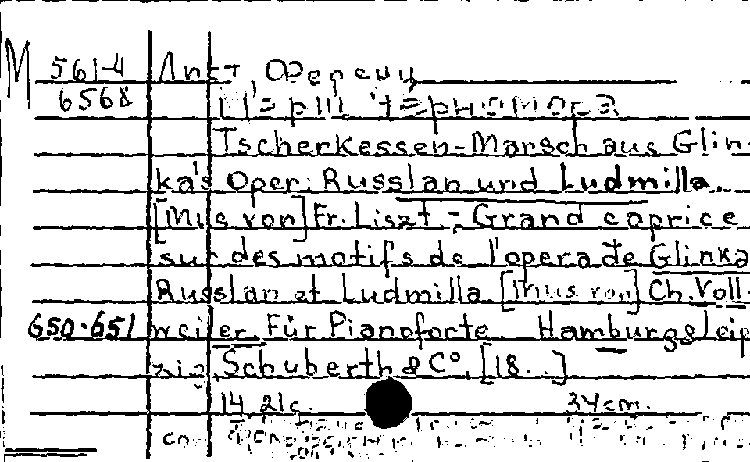 M 561-4 Лист, Ференц
6568 Марш Черномора
Tscherkessen-Marsch aus Glin-
ka's Oper: Russlan und Ludmilla.
[Mus von] Fr. Liszt - Grand caprice
sur des motifs de l'opera de Glinka
Russlan et Ludmilla [Mus von] Ch. Voll-
650-651 weiler. Für Pianoforte Hamburg s Leip
zig, Schuberth & Cº. [18..]
14, 21 c. 34 cm.